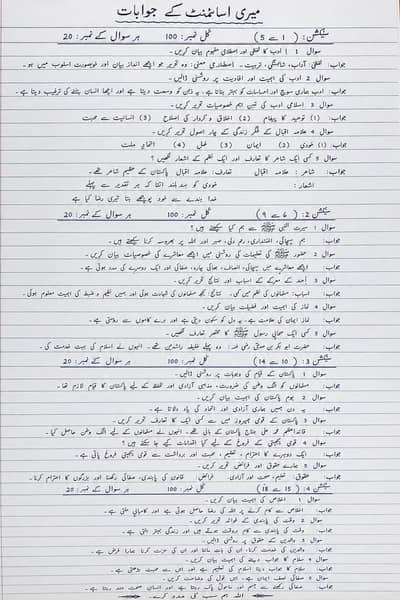 میری اسائنمنٹ کے جوابات
سیکشن 1: (1 سے 5) کل نمبر: 100 ہر سوال کے نمبر: 20
سوال 1 ادب کا لفظی و اصطلاحی مفہوم بیان کریں۔
جواب: لفظی: آداب، شائستگی، تربیت۔ اصطلاحی معنی: وہ تحریر جو اچھے انداز بیان اور خوبصورت اسلوب میں ہو۔
سوال 2 ادب کی اہمیت اور افادیت پر روشنی ڈالیں۔
جواب: ادب ہماری سوچ اور احساسات کو بہتر بناتا ہے۔ یہ ذہن کو وسعت دیتا ہے اور اچھا انسان بننے کی ترغیب دیتا ہے۔
سوال 3 اسلامی ادب کی تین اہم خصوصیات تحریر کریں۔
جواب: (1) توحید کا پیغام (2) اخلاق و کردار کی اصلاح (3) انسانیت سے محبت
سوال 4 علامہ اقبال کے فکر زندگی کے چار اصول تحریر کریں۔
جواب: (1) خودی (2) ایمان (3) عمل (4) اتحاد ملت
سوال 5 کسی ایک شاعر کا تعارف اور ایک نظم کے اشعار لکھیں؟
جواب: شاعر: علامہ اقبال تعارف: علامہ اقبال پاکستان کے عظیم شاعر تھے۔
اشعار: خودی کو کر بلند اتنا کہ ہر تقدیر سے پہلے
خدا بندے سے خود پوچھے بتا تیری رضا کیا ہے
سیکشن 2: (6 سے 9) کل نمبر: 100 ہر سوال کے نمبر: 20
سوال 1 سیرت النبی ﷺ سے ہم کیا سیکھتے ہیں؟
جواب: ہم سچائی، امانتداری، رحم دلی، صبر اور اللہ پر بھروسہ کرنا سیکھتے ہیں۔
سوال 2 حضور ﷺ کی تعلیمات کی روشنی میں اچھے معاشرے کی خصوصیات بیان کریں۔
جواب: اچھے معاشرے میں سچائی، انصاف، بھائی چارہ، صفائی اور ایک دوسرے کی مدد ہوتی ہے۔
سوال 3 احد کے معرکے کے اسباب اور نتائج تحریر کریں۔
جواب: اسباب: مسلمانوں کی نظم میں کمی۔ نتائج: کچھ مسلمانوں کی شہادت ہوئی اور ہمیں نظم و ضبط کی اہمیت معلوم ہوئی۔
سوال 4 نماز کی اہمیت اور فضیلت بیان کریں۔
جواب: نماز ایمان کی علامت ہے۔ یہ دل کو سکون دیتی ہے اور برے کاموں سے روکتی ہے۔
سوال 5 کسی ایک صحابی رسول ﷺ کا مختصر تعارف لکھیں۔
جواب: حضرت ابو بکر صدیق رضی اللہ عنہ: وہ پہلے خلیفہ راشدین تھے۔ انہوں نے اسلام کی بہت خدمت کی۔
سیکشن 3: (10 سے 14) کل نمبر: 100 ہر سوال کے نمبر: 20
سوال 1 پاکستان کے قیام کی وجوہات پر روشنی ڈالیں۔
جواب: مسلمانوں کو الگ وطن کی ضرورت، مذہبی آزادی اور تحفظ کے لیے پاکستان کا قیام لازم تھا۔
سوال 2 یوم پاکستان کی اہمیت بیان کریں۔
جواب: یہ دن ہمیں ہماری آزادی اور اتحاد کی یاد دلاتا ہے۔
سوال 3 پاکستان کے قومی ہیروز میں سے کسی ایک کا تعارف تحریر کریں۔
جواب: قائداعظم محمد علی جناح پاکستان کے بانی تھے۔ انہوں نے مسلمانوں کے لیے الگ وطن حاصل کیا۔
سوال 4 قومی یکجہتی کے فروغ کے لیے کیا اقدامات کیے جا سکتے ہیں؟
جواب: ایک دوسرے کا احترام، تعلیم، محبت اور برداشت سے قومی یکجہتی فروغ پاتی ہے۔
سوال 5 ہمارے حقوق اور فرائض تحریر کریں۔
جواب: حقوق: تعلیم، صحت اور آزادی۔ فرائض: قانون کی پابندی، صفائی رکھنا اور بزرگوں کا احترام کرنا۔
سیکشن 4: (15 سے 18) کل نمبر: 100 ہر سوال کے نمبر: 20
سوال 1 اخلاص کی اہمیت بیان کریں۔
جواب: اخلاص سے کام کرنے پر اللہ کی رضا حاصل ہوتی ہے اور کامیابی ملتی ہے۔
سوال 2 وقت کی پابندی کے فوائد تحریر کریں۔
جواب: وقت کی پابندی سے کام وقت پر ہوتے ہیں اور زندگی بہتر بنتی ہے۔
سوال 3 والدین کے حقوق پر روشنی ڈالیں۔
جواب: والدین کی خدمت کرنا، ان کی بات ماننا اور ان کی عزت کرنا ہمارا فرض ہے۔
سوال 4 سلام کا جواب دینے کی اہمیت بیان کریں۔
جواب: سلام کا جواب دینا اسلامی تعلیم ہے اور اس سے محبت بڑھتی ہے۔
سوال 5 صفائی نصف ایمان ہے۔ اس قول کی وضاحت کریں۔
جواب: صفائی رکھنے سے ہم اور ماحول پاک رہتا ہے اور انسان صحت مند رہتا ہے۔
اللہ ہم سب کی مدد کرے۔